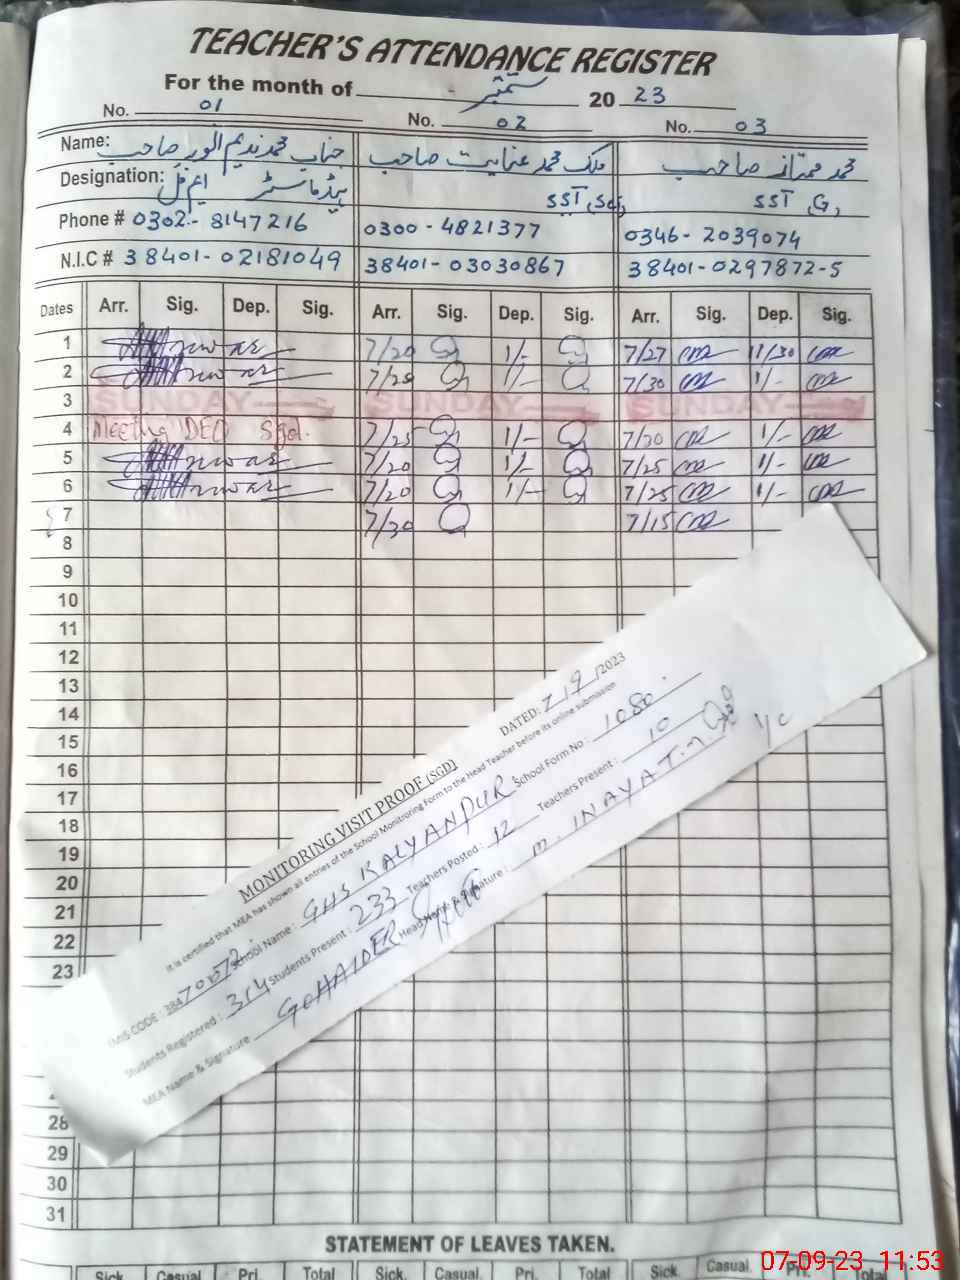 TEACHER'S ATTENDANCE REGISTER
For the month of ستمبر 20 23
No. 01 No. 02 No. 03
Name: جناب محمد ندیم انور صاحب ملک محمد عنایت صاحب محمد ممتاز صاحب
Designation: ہیڈ ماسٹر ایم فل SST (Sc) SST (G)
Phone # 0302-8147216 0300-4821377 0346-2039074
N.I.C # 38401-02181049 38401-03030867 38401-0297872-5
Dates Arr. Sig. Dep. Sig. Arr. Sig. Dep. Sig. Arr. Sig. Dep. Sig.
1 Anwar 7/20 1/- 7/27 11/30
2 Anwar 7/25 1/- 7/30 1/-
3 SUNDAY SUNDAY SUNDAY
4 Meeting DEO Sgd. 7/25 1/- 7/20 1/-
5 Anwar 7/20 1/- 7/25 1/-
6 Anwar 7/20 1/- 7/25 1/-
7 7/20 7/15
8
9
10
11
12
13
14
15
16
17
18
19
20
21
22
23
28
29
30
31
MONITORING VISIT PROOF (SGD) DATED: 7/9/2023
It is certified that MEA has shown all entries of the School Monitoring Form to the Head Teacher before its online submission
EMIS CODE : School Name : GHS KALYANPUR School Form No : 1080
Students Registered : 314 Students Present : 233 Teachers Posted : 12 Teachers Present : 10
MEA Name & Signature G. HAIDER Head Name & Signature : M. INAYAT I/C
STATEMENT OF LEAVES TAKEN.
Sick. Casual. Pri. Total Sick. Casual. Pri. Total Sick. Casual. Pri. Total
07-09-23 11:53